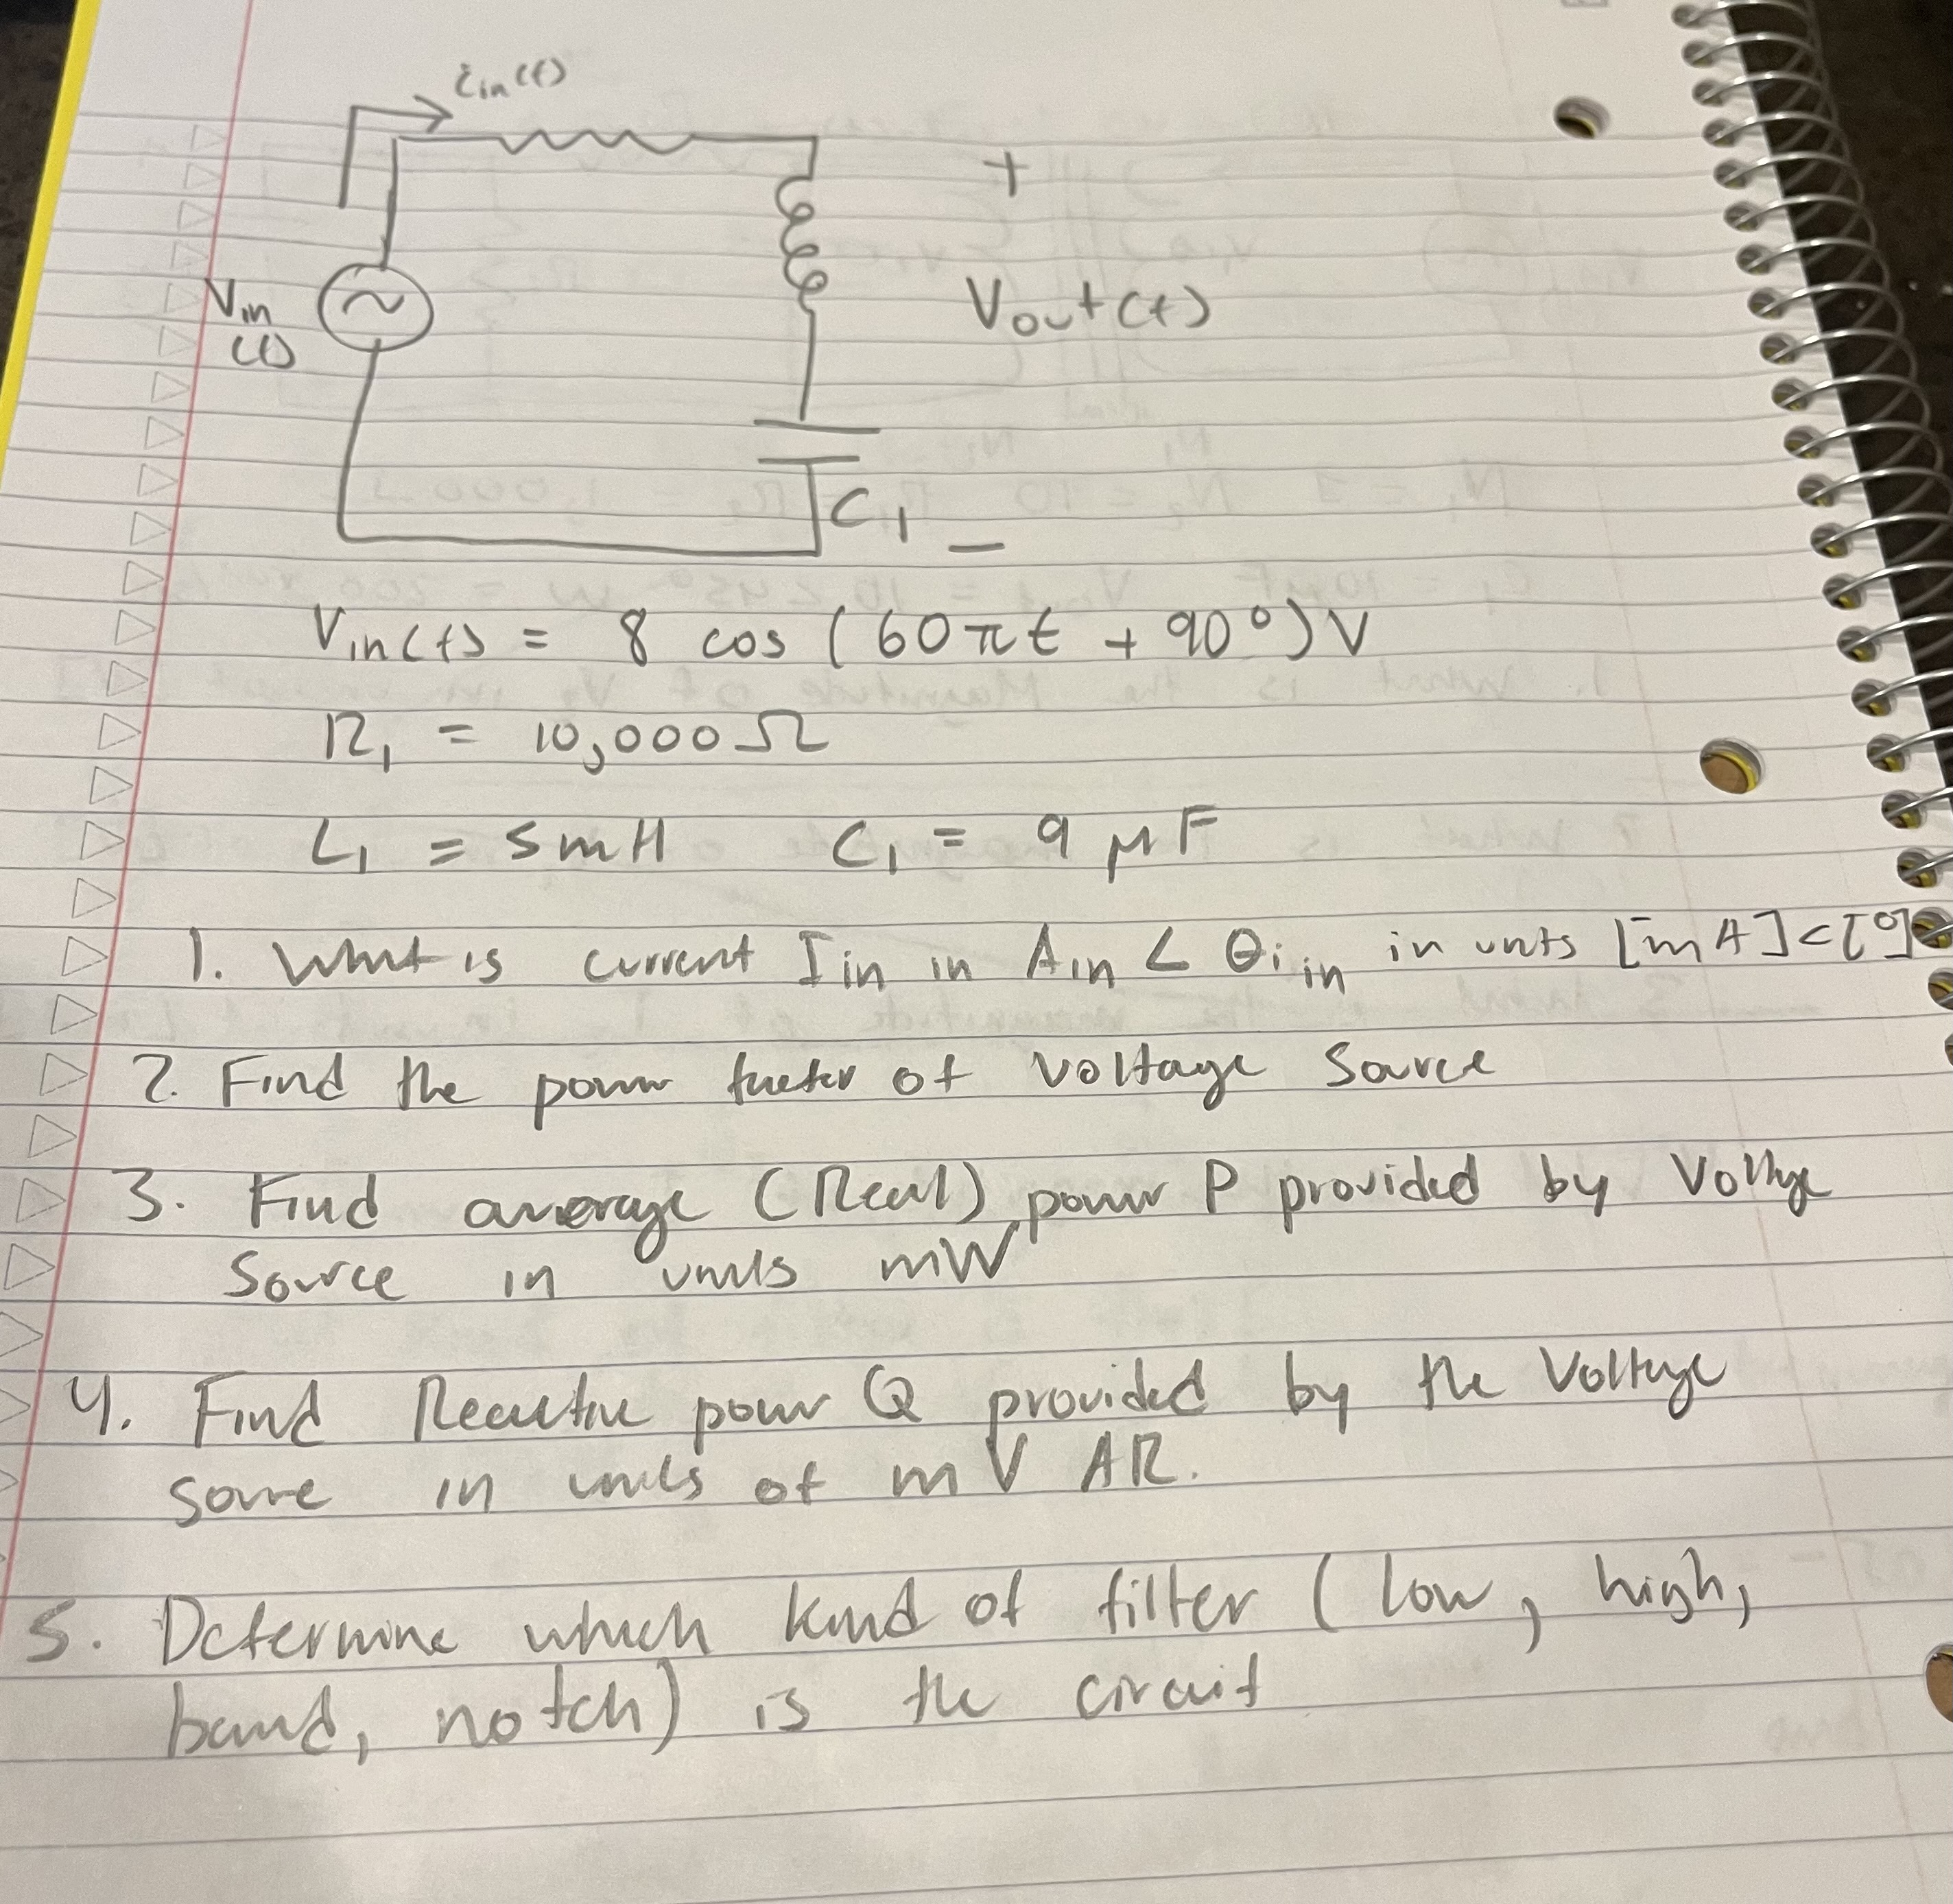 iin(t)
+
Vin
(t)
Vout(t)
C1
−
Vin(t) = 8 cos (60πt + 90°)V
R1 = 10,000Ω
L1 = 5mH C1 = 9 μF
1. What is current Iin in Ain < θiin in units [mA]<[°]
2. Find the power factor of voltage source
3. Find average (Real) power P provided by Voltage
source in units mW
4. Find Reactive power Q provided by the Voltage
source in units of mVAR.
5. Determine which kind of filter (low, high,
band, notch) is the circuit